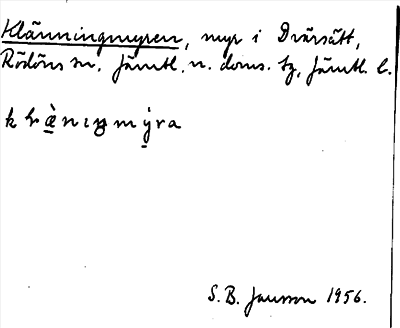 Klänningmyren, myr i Dvärsätt,
Rödöns sn, Jämtl. n. doms. tg, Jämtl. l.
S. B. Jansson 1956.